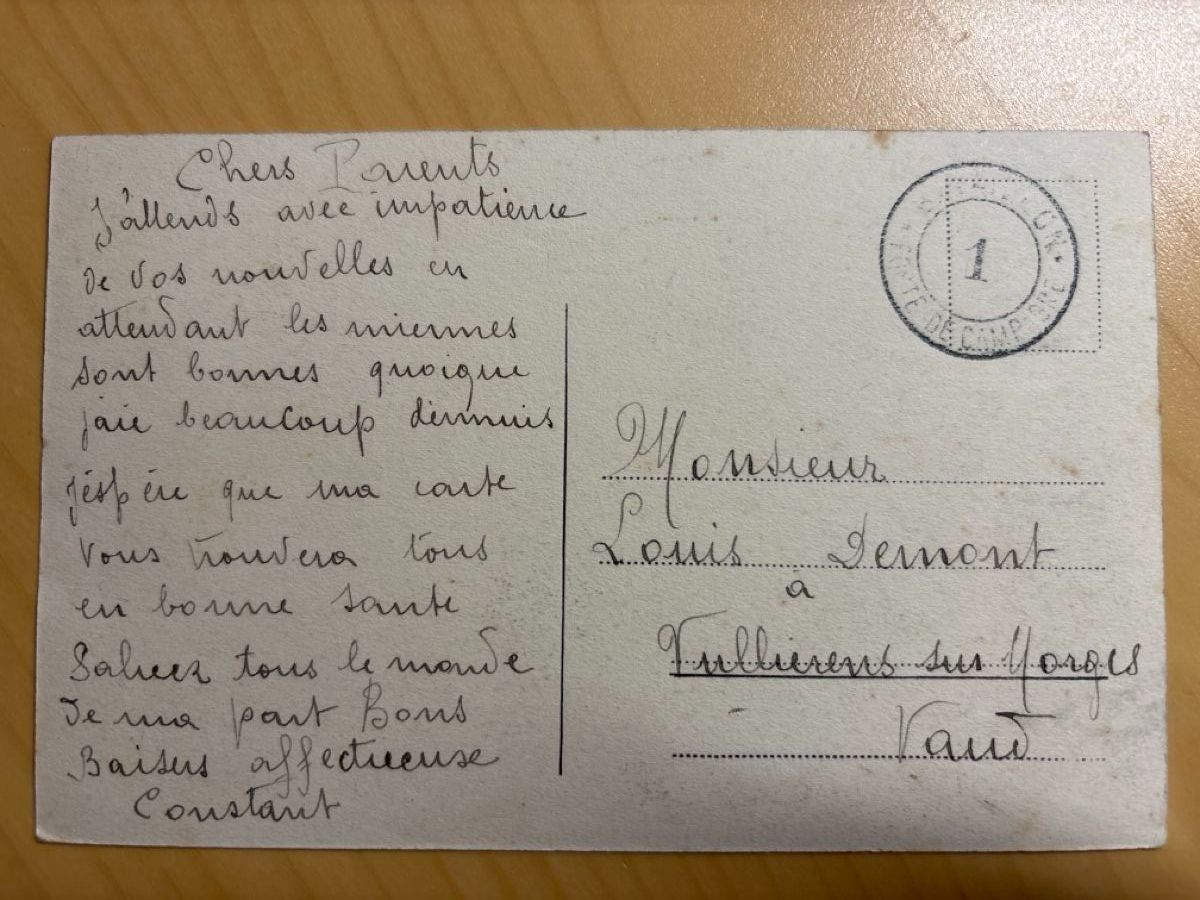 Chers Parents
J'attends avec impatience
de vos nouvelles en
attendant les miennes
sont bonnes quoique
jaie beaucoup d'ennuis
j'éspére que ma carte
vous trouvera tous
en bonne santé
Saluez tous le monde
de ma part Bons
Baisers affectueuse
Constant
BATAILLON
1
POSTE DE CAMPAGNE
Monsieur
Louis Demont
à
Vullierens sur Morges
Vaud